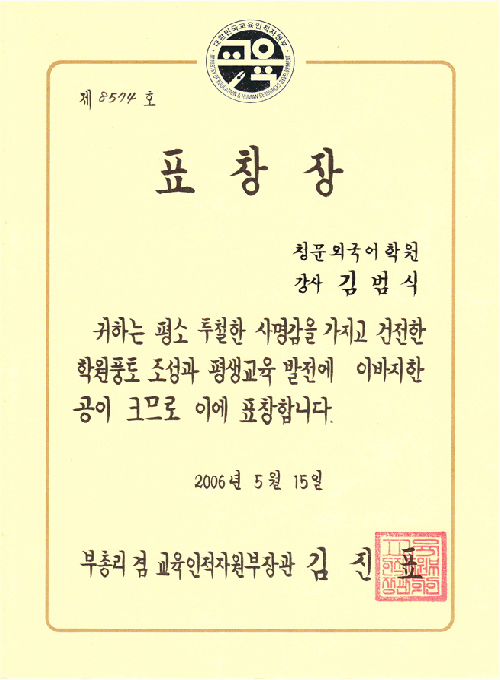 교육
제 8574 호
표 창 장
청문외국어학원
강사 김 범 식
귀하는 평소 투철한 사명감을 가지고 건전한
학원풍토 조성과 평생교육 발전에 이바지한
공이 크므로 이에 표창합니다.
2006년 5월 15일
부총리 겸 교육인적자원부장관 김 진 표